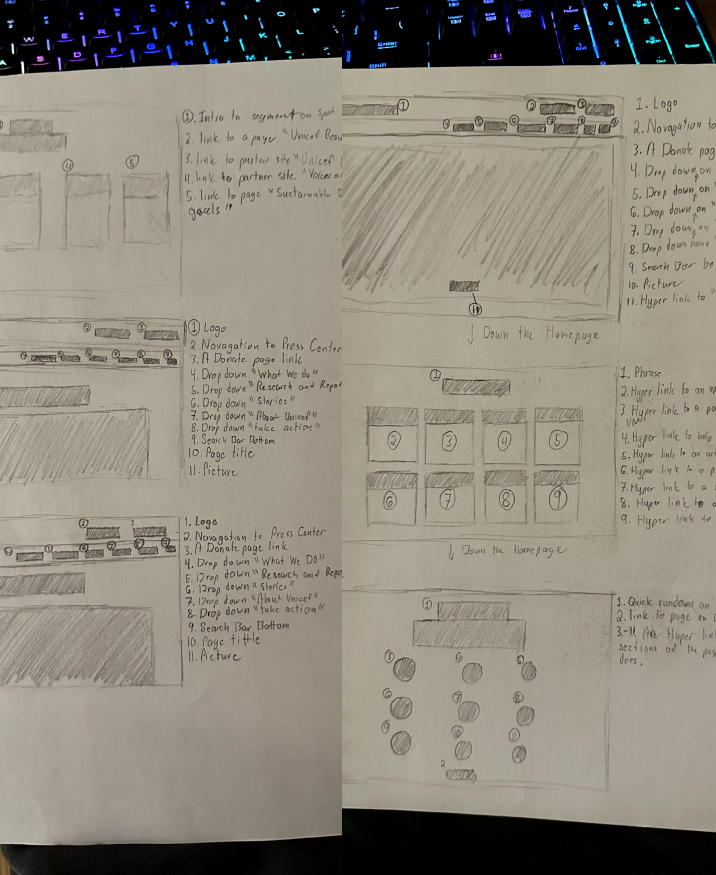 ①. Intro to segment on spot
2. link to a page "Unicef
3. link to partner site "Unicef
4. link to partner site "Voices
5. link to page "Sustainable D
goals"
④
⑤
① Logo
2. Navagation to Press Center
3. A Donate page link
4. Drop down "What We do"
5. Drop down "Research and Repor
6. Drop down "Stories"
7. Drop down "About Unicef"
8. Drop down "take action"
9. Search Bar Bottom
10. Page title
11. Picture
1. Logo
2. Navagation to Press Center
3. A Donate page link
4. Drop down "What We DO"
5. Drop down "Research and Repo
6. Drop down "Stories"
7. Drop down "About Unicef"
8. Drop down "take action"
9. Search Bar Bottom
10. Page tittle
11. Picture
①
1. Logo
2. Navagation to
3. A Donate pag
4. Drop down on
5. Drop down on
6. Drop down on "
7. Drop down on
8. Drop down menu
9. Search Bar bo
10. Picture
11. Hyper link to "
↓ Down the Homepage
①
② ③ ④ ⑤
⑥ ⑦ ⑧ ⑨
1. Phrase
2. Hyper link to an
3. Hyper link to a
4. Hyper link to help
5. Hyper link to an
6. Hyper link to a p
7. Hyper link to a
8. Hyper link to a
9. Hyper link to
↓ Down the Homepage
①
1. Quick rundown on
2. link to page on
3-11 Are Hyper lin
sections of the pa
does.